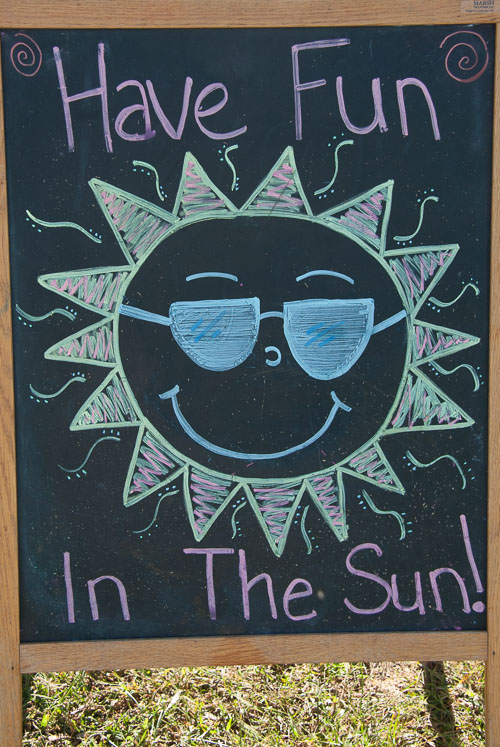 Have Fun
In The Sun!